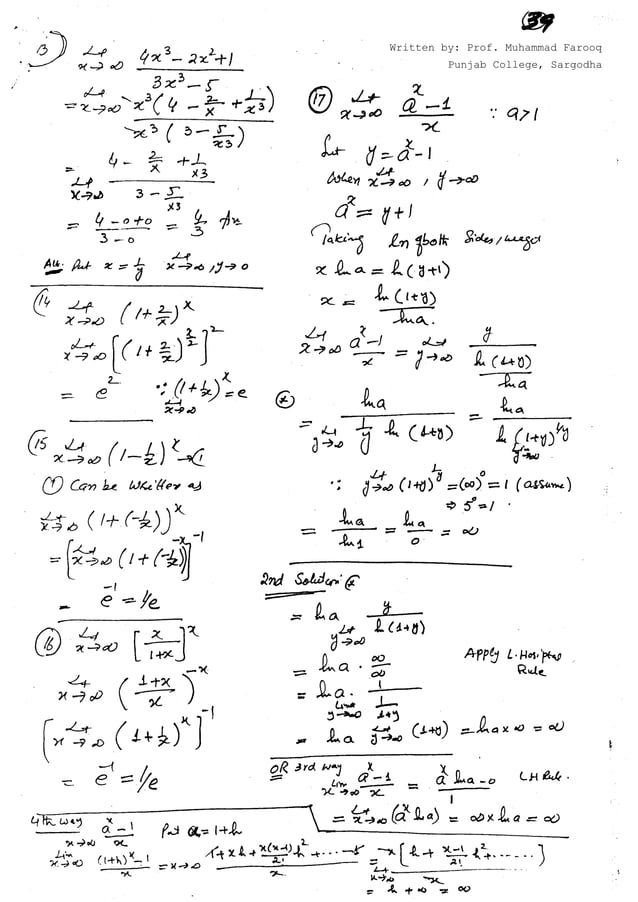 39
Written by: Prof. Muhammad Farooq
Punjab College, Sargodha
13) Lt x→∞ (4x³ - 2x² + 1)/(3x³ - 5)
= Lt x→∞ x³(4 - 2/x + 1/x³)/x³(3 - 5/x³)
= Lt x→∞ (4 - 2/x + 1/x3)/(3 - 5/x3)
= (4 - 0 + 0)/(3 - 0) = 4/3 An
Put x = 1/y Lt x→∞, y→0
(14 Lt x→∞ (1 + 2/x)^x
Lt x→∞ [(1 + 2/x)^(x/2)]^2
= e^2 ∵ Lt x→∞ (1 + 1/x)^x = e
(15 Lt x→∞ (1 - 1/x)^x →(1
(1) Can be written as
Lt x→∞ (1 + (-1/x))^x
= [Lt x→∞ (1 + (-1/x))^-x]^-1
= e^-1 = 1/e
(16) Lt x→∞ [x/(1+x)]^x
Lt x→∞ ((1+x)/x)^-x
[Lt x→∞ (1 + 1/x)^x]^-1
= e^-1 = 1/e
(17) Lt x→∞ (a^x - 1)/x ∵ a>1
Let y = a^x - 1
When Lt x→∞, y→∞
a^x = y+1
Taking ln of both Sides, we get
x ln a = ln(y+1)
x = ln(1+y)/ln a.
Lt x→∞ (a^x - 1)/x = Lt y→∞ y/(ln(1+y)/ln a)
(x) = ln a/(Lt y→∞ 1/y ln(1+y)) = ln a/(ln Lt y→∞ (1+y)^1/y)
∵ Lt y→∞ (1+y)^1/y = (∞)^0 = 1 (assume)
⇒ 5^0 = 1.
= ln a/ln 1 = ln a/0 = ∞
2nd Solution x
= ln a Lt y→∞ y/ln(1+y)
= ln a . ∞/∞ APPLY L. Hospitas Rule
= ln a . Lim y→∞ 1/(1/(1+y))
= ln a Lt y→∞ (1+y) = ln a x ∞ = ∞
OR 3rd way Lim x→∞ (a^x - 1)/x = (a^x ln a - 0)/1 LH Rule.
= Lt x→∞ (a^x ln a) = ∞ x ln a = ∞
4th way Lt x→∞ (a^x - 1)/x Put a = 1+h
Lim x→∞ ((1+h)^x - 1)/x = x→∞ (1 + xh + x(x-1)/2! h² + .... - 1)/x = Lt x→∞ x[h + (x-1)/2! h² + ......]/x
= h + ∞ = ∞